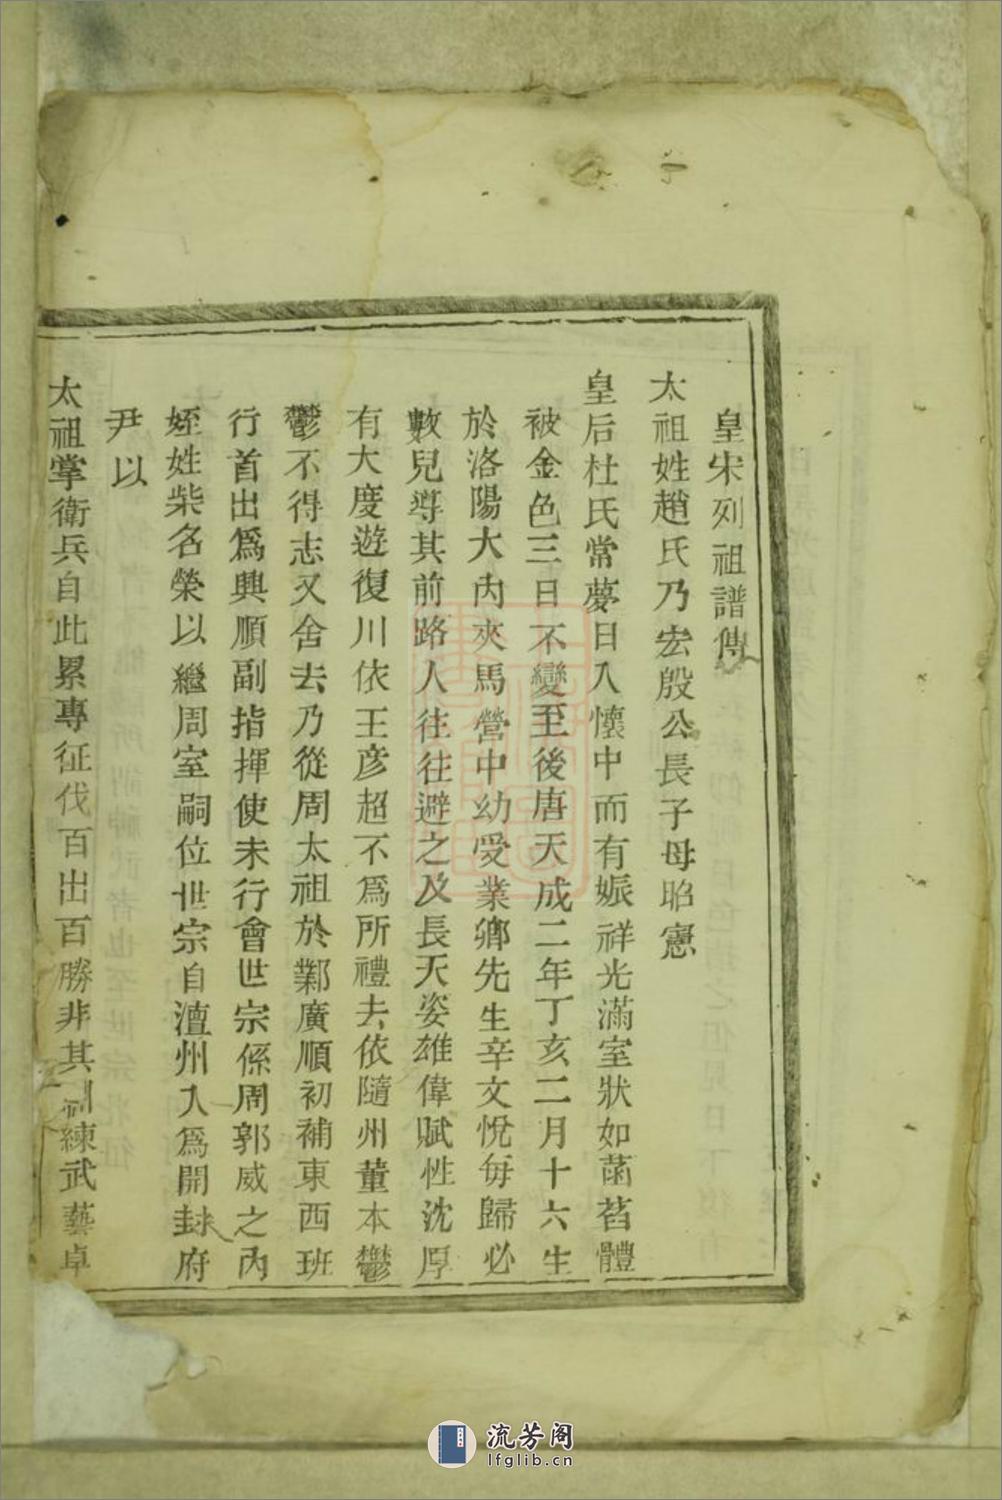 皇宋列祖譜傳
太祖姓趙氏乃宏殷公長子母昭憲
皇后杜氏常夢日入懷中而有娠祥光滿室狀如菡萏體
被金色三日不變至後唐天成二年丁亥二月十六生
於洛陽大內夾馬營中幼受業鄉先生辛文悅每歸必
數兒導其前路人往往避之及長天姿雄偉賦性沈厚
有大度遊復川依王彥超不為所禮去依隨州董本鬱
鬱不得志又舍去乃從周太祖於鄴廣順初補東西班
行首出為興順副指揮使未行會世宗係周郭威之內
姪姓柴名榮以繼周室嗣位世宗自澶州入為開封府
尹以
太祖掌衛兵自此累專征伐百出百勝非其訓練武藝卓
流芳阁
lfglib.cn